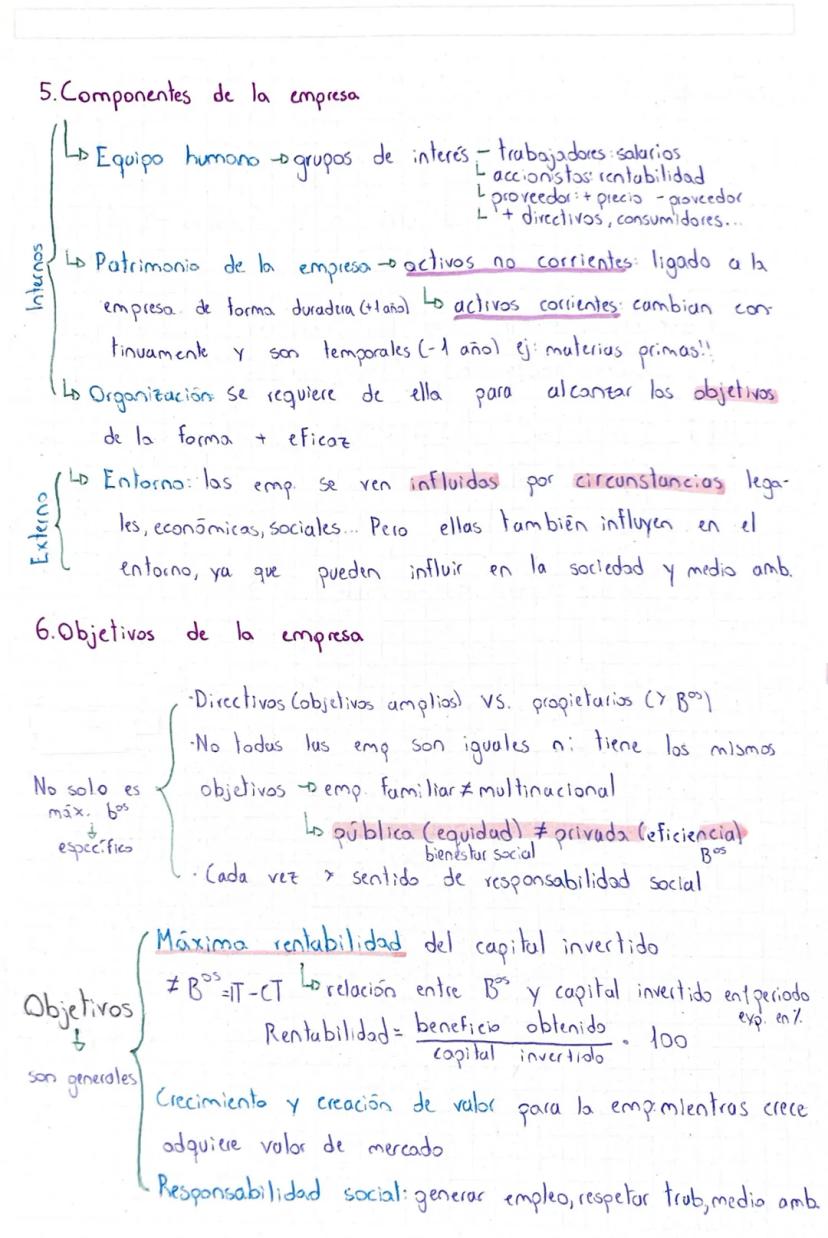 5.Componentes de la empresa
Internos
↳ Equipo humano → grupos de interés - trabajadores: salarios
↳ accionistas: rentabilidad
↳ proveedor: + precio - proveedor
↳ + directivos, consumidores...
↳ Patrimonio de la empresa → activos no corrientes: ligado a la
empresa de forma duradera (+1año) ↳ activos corrientes: cambian con-
tinuamente y son temporales (-1 año) ej: materias primas!!
↳ Organización: se requiere de ella para alcanzar los objetivos
de la forma + eficaz
Externo
↳ Entorno: las emp. se ven influidas por circunstancias lega-
les, económicas, sociales... Pero ellas también influyen en el
entorno, ya que pueden influir en la sociedad y medio amb.
6.Objetivos de la empresa
No solo es
máx. bºˢ
↓
específico
·Directivos (objetivos amplios) VS. propietarios (> Bºˢ)
·No todas las emp son iguales ni tiene los mismos
objetivos → emp. familiar ≠ multinacional
↳ pública (equidad) ≠ privada (eficiencia)
bienestar social Bºˢ
· Cada vez > sentido de responsabilidad social
Objetivos
↓
son generales
Máxima rentabilidad del capital invertido
≠ Bºˢ=IT-CT ↳ relación entre Bºˢ y capital invertido en 1 periodo
exp. en %
Rentabilidad = beneficio obtenido · 100
capital invertido
Crecimiento y creación de valor para la emp: mientras crece
adquiere valor de mercado
Responsabilidad social: generar empleo, respetar trab, medio amb.